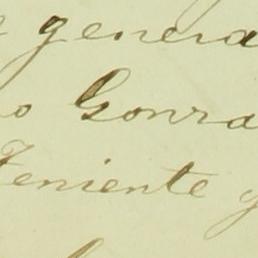 genera
o Gonra
Teniente y